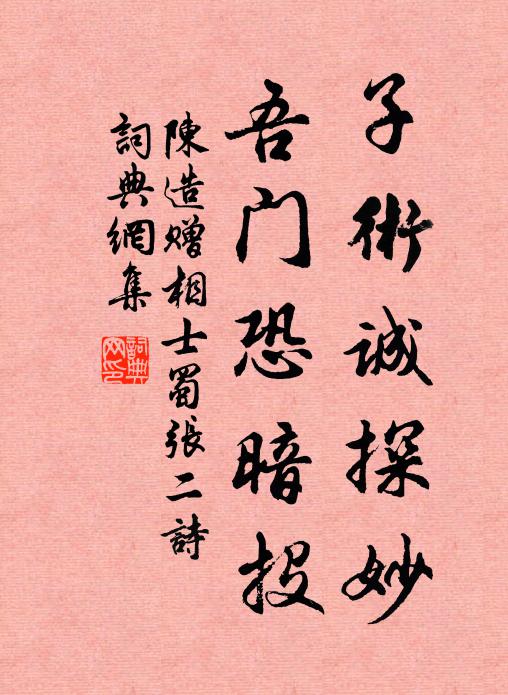 子術誠探妙
吾门恐暗投
陳造赠相士蜀張二詩
詞典網集
詞典網印